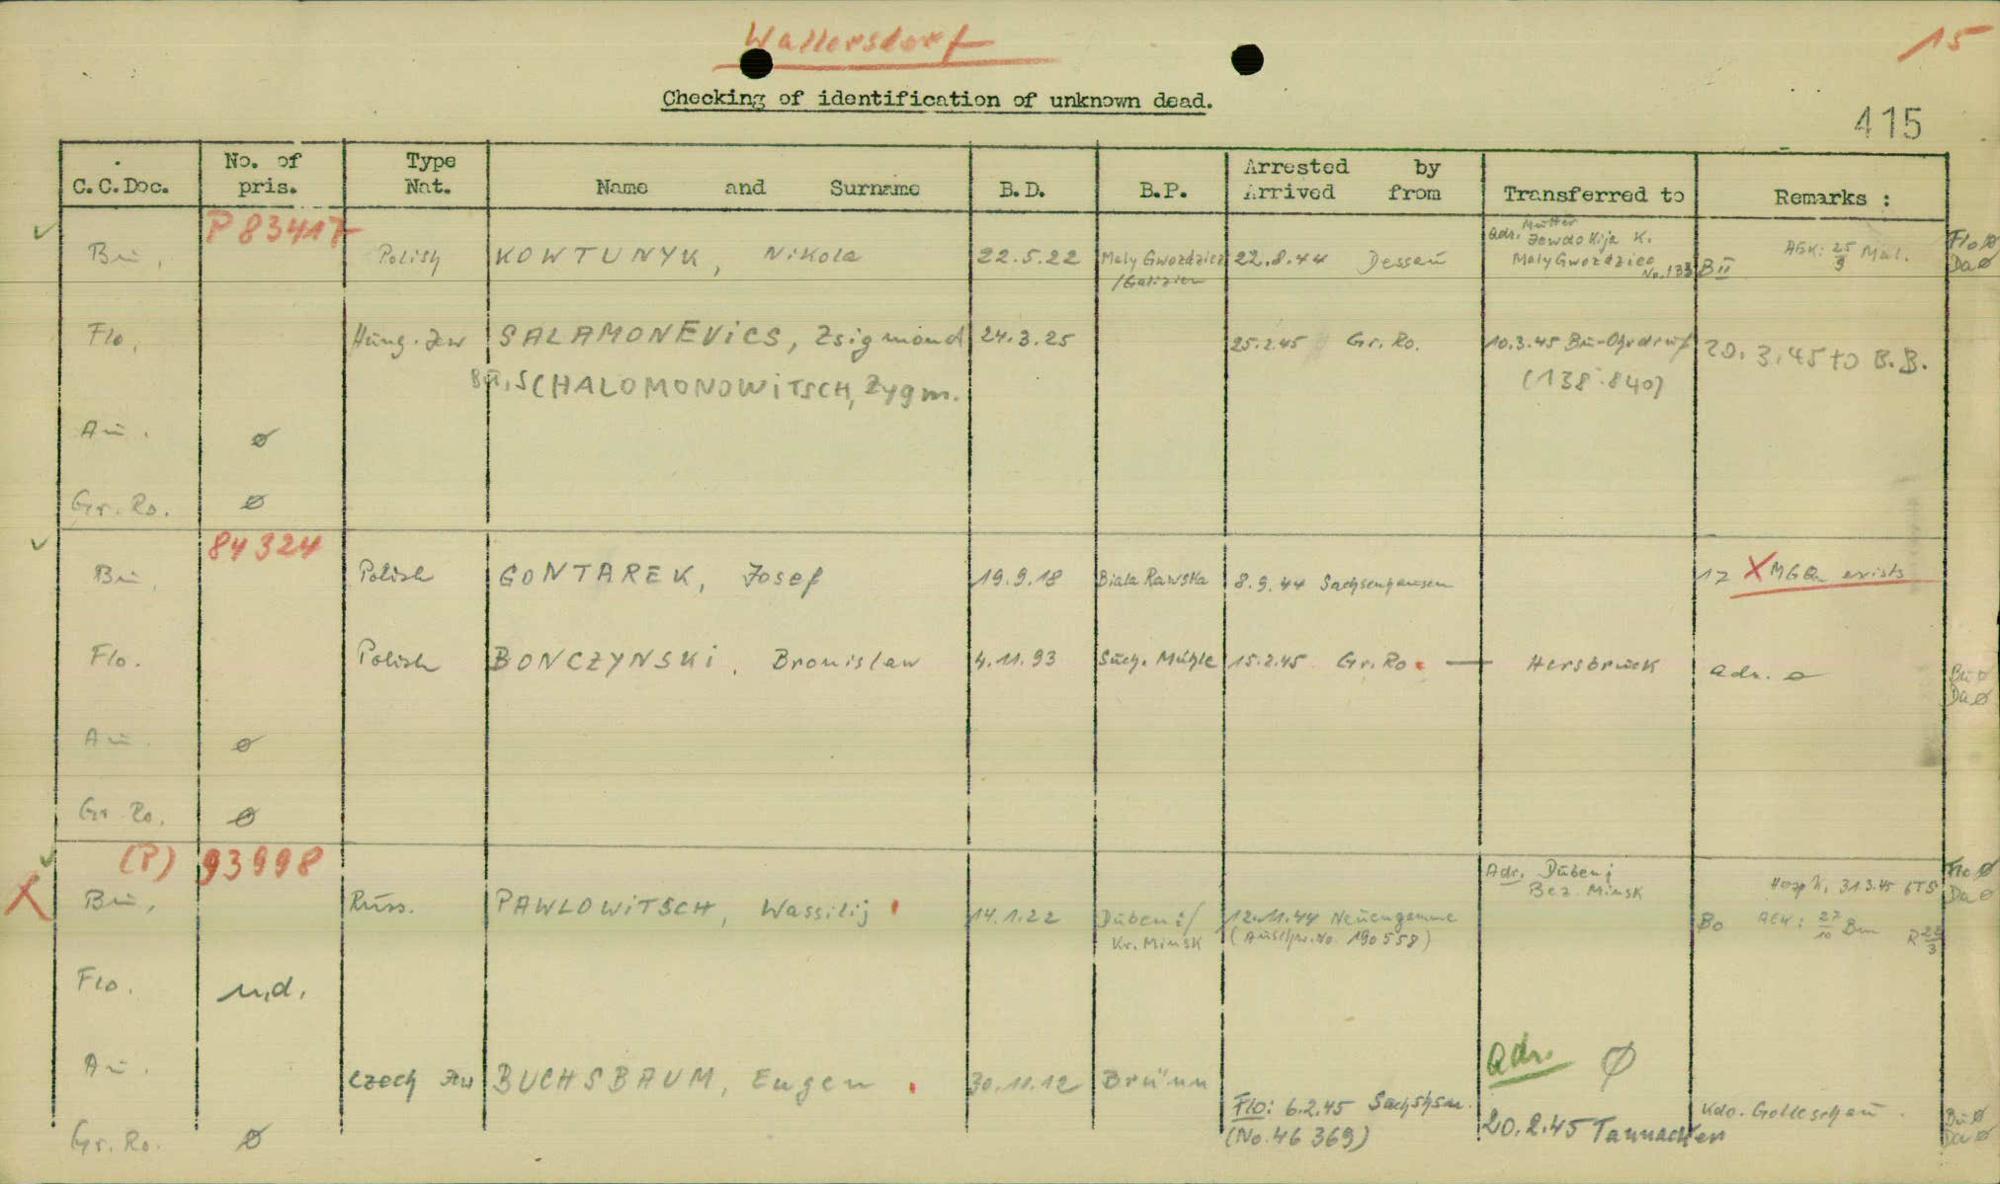 Wallersdorf
15
Checking of identification of unknown dead.
415
C.C.Doc. No. of pris. Type Nat. Name and Surname B.D. B.P. Arrested by Arrived from Transferred to Remarks :
P 83417
Bu. Polish KOWTUNYK, Nikola 22.5.22 Maly Gwozdziec /Galizien 22.8.44 Dessau
Adr. Mutter
Jewdokija K.
Maly Gwozdziec
No. 133
BII
AEK: 25/9 Mal.
Flo ø
Da ø
Flo. Hung. Jew SALAMONEVICS, Zsigmond 24.3.25 25.2.45 Gr. Ro. 10.3.45 Bu-Ohrdruf 20.3.45 to B.B.
Bu. SCHALOMONOWITSCH, Zygm. (138.840)
Au. ø
Gr. Ro. ø
84324
Bu. Polish GONTAREK, Josef 19.9.18 Biala Rawska 8.9.44 Sachsenhausen 17 X MGQu exists
Flo. Polish BONCZYNSKI, Bronislaw 4.11.93 Such. Mühle 15.2.45 Gr. Ro. — Hersbruck adr. ø
Bu ø
Da ø
Au. ø
Gr. Ro. ø
(P) 93998
X Bu. Russ. PAWLOWITSCH, Wassilij 14.1.22 Dubeni/ Kr. Minsk 12.11.44 Neuengamme
(Auschw. No. 190558)
Adr. Dubeni
Bez. Minsk
Bo
Flo ø
Da ø
Flo. n.d.
Au. Czech Jew BUCHSBAUM, Eugen 30.11.12 Brünn
adr. ø
Flo: 6.2.45 Sachshsn.
(No. 46369)
20.2.45 Tannachten
Kdo. Golleschau.
Bu ø
Da ø
Gr. Ro. ø